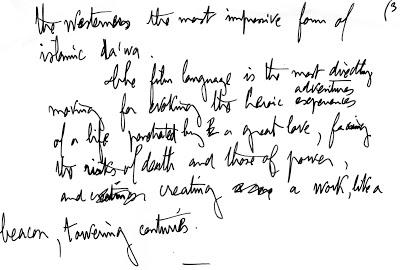 (3
the westerners the most impressive form of
islamic da'wa.
The film language is the most directly
moving for evoking the heroic adventures experiences
of a life penetrated by a great love, facing
the risks of death and those of power,
and creating a work, like a
beacon, towering centuries.